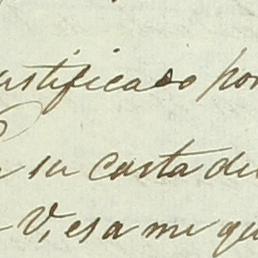 ustificado por
su carta de
V, esa me qu